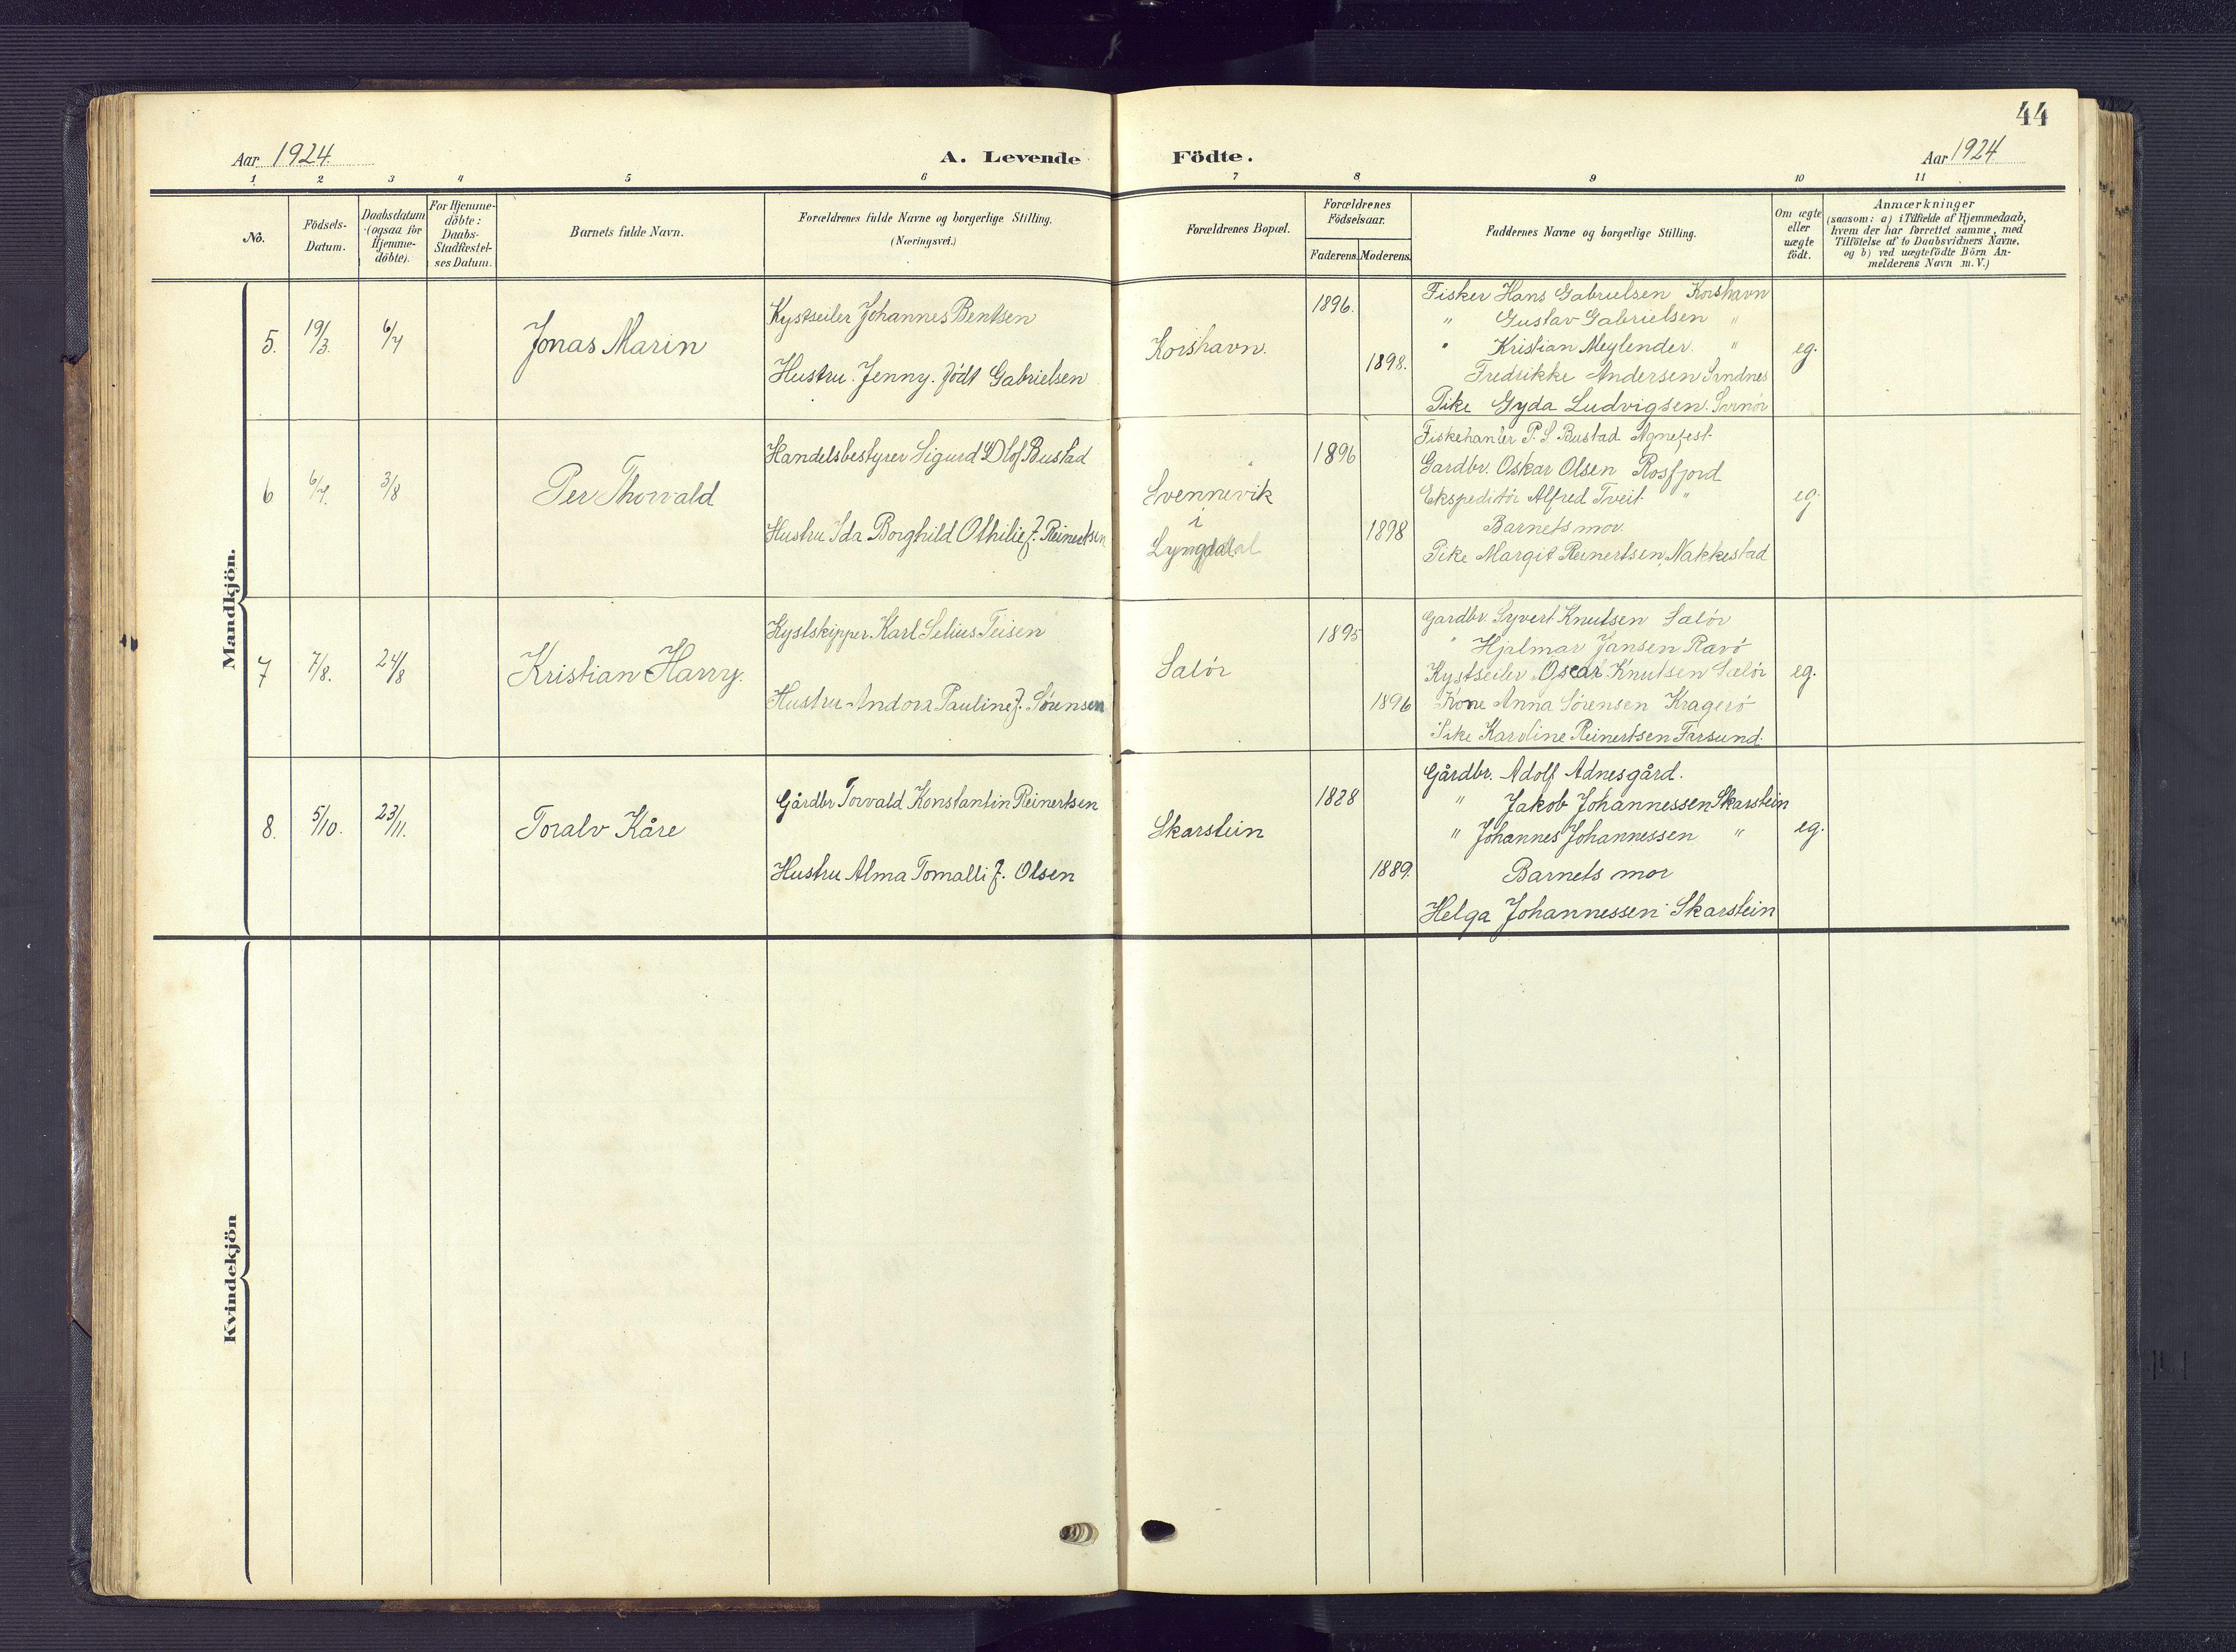 44
Aar 1924
A. Levende Födte.
Aar 1924
1 2 3 4 5 6 7 8 9 10 11
No.
Födsels-
Datum.
Daabsdatum
(ogsaa for
Hjemme-
döbte).
For Hjemme-
döbte:
Daabs-
Stadfæstel-
ses Datum.
Barnets fulde Navn.
Forældrenes fulde Navne og borgerlige Stilling.
(Næringsvei.)
Forældrenes Bopæl.
Forældrenes
Födselsaar.
Faderens. Moderens.
Faddernes Navne og borgerlige Stilling.
Om ægte
eller
uægte
födt.
Anmærkninger
(saasom: a) i Tilfælde af Hjemmedaab,
hvem der har forrettet samme, med
Tilföielse af to Daabsvidners Navne,
og b) ved uægtefödte Börn An-
melderens Navn m. V.)
Mandkjön.
5. 19/3. 6/4
Jonas Marin
Kystseiler Johannes Bentsen
Hustru. Jenny. født Gabrielsen
Korshavn.
1896.
1898.
Fisker Hans Gabrielsen Korshavn
" Gustav Gabrielsen "
" Kristian Meylender "
Fredrikke Andersen
Pike Gyda Ludvigsen. Svinør
eg.
6 6/7. 3/8
Per Thorvald
Handelsbestyrer Sigurd Olof Bustad
Hustru Ida Borghild Othilie f. Reinertsen
Svennevik
i
Lyngdal
1896
1898
P. S. Bustad Agnefest.
Gardbr. Oskar Olsen Rosfjord
Ekspeditør Alfred Tveit "
Barnets mor.
Pike Margit Reinertsen, Nakkestad
eg.
7 7/8. 24/8
Kristian Harry.
Kystskipper. Karl Selius Teisen
Hustru Andora Pauline f. Sørensen
Salør
1895
1896
Gardbr. Syvert Knutsen Salør
" Hjalmar Jansen Ravø
Kystseiler Oscar Knutsen Salør
Kone Anna Sørensen Kragerø
Pike Karoline Reinertsen Farsund.
eg.
8. 5/10. 23/11.
Toralv Kåre
Gårdbr Torvald Konstantin Reinertsen
Hustru Alma Tomalli f. Olsen
Skarstein
1828
1889.
Gårdbr. Adolf Adnesgård.
" Jakob Johannessen Skarstein
" Johannes Johannessen "
Barnets mor
Helga Johannessen Skarstein
eg.
Kvindekjön